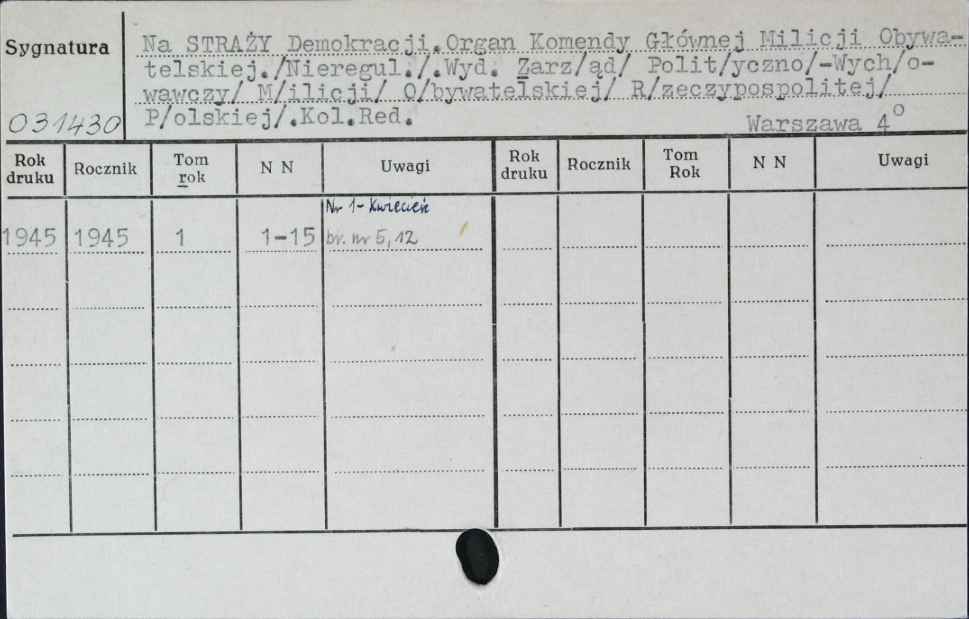 Sygnatura
031430
Na STRAŻY Demokracji.Organ Komendy Głównej Milicji Obywa-
telskiej./Nieregul./.Wyd. Zarz/ąd/ Polit/yczno/-Wych/o-
wawczy/ M/ilicji/ O/bywatelskiej/ R/zeczypospolitej/
P/olskiej/.Kol.Red.
Warszawa 4°
Rok druku Rocznik Tom rok N N Uwagi Rok druku Rocznik Tom Rok N N Uwagi
Nr 1-Kwiecień
1945 1945 1 1-15 br. nr 5,12